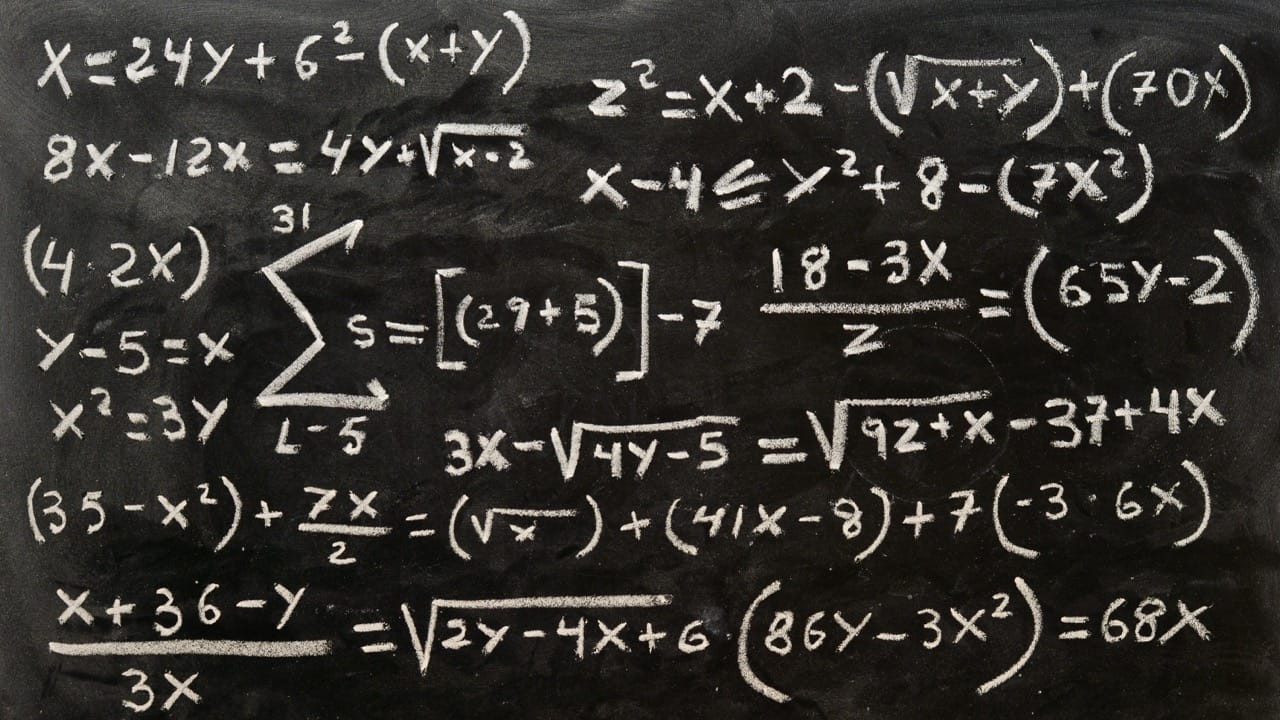 x=24y+6²-(x+y)
z²=x+2-(√x+y)+(70x)
8x-12x=4y+√x-2
x-4≤y²+8-(7x²)
(4·2x)
31
∑ s=[(29+5)]-7
L-5
18-3x/z=(65y-2)
y-5=x
x²=3y
3x-√4y-5=√92+x-37+4x
(35-x²)+7x/2=(√x)+(41x-8)+7(-3·6x)
x+36-y/3x=√2y-4x+6·(86y-3x²)=68x